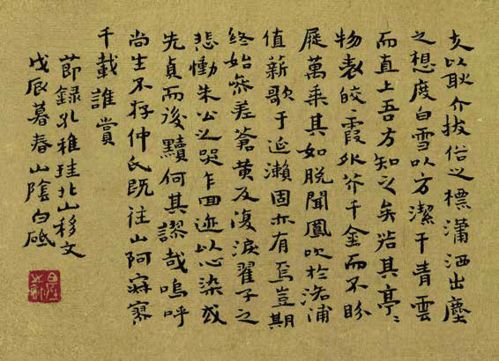 夫以耿介拔俗之標瀟洒出塵
之想度白雪以方潔干青雲
而直上吾方知之矣若其亭〻
物表皎霞外芥千金而不盼
屣萬乘其如脫聞鳳吹於洛浦
值薪歌于延瀨固亦有焉豈期
終始參差蒼黃反復淚翟子之
悲慟朱公之哭乍回迹以心染或
先貞而後黷何其謬哉嗚呼
尚生不存仲氏既往山阿寂寥
千載誰賞
節錄孔稚珪北山移文
戊辰暮春山陰白砥